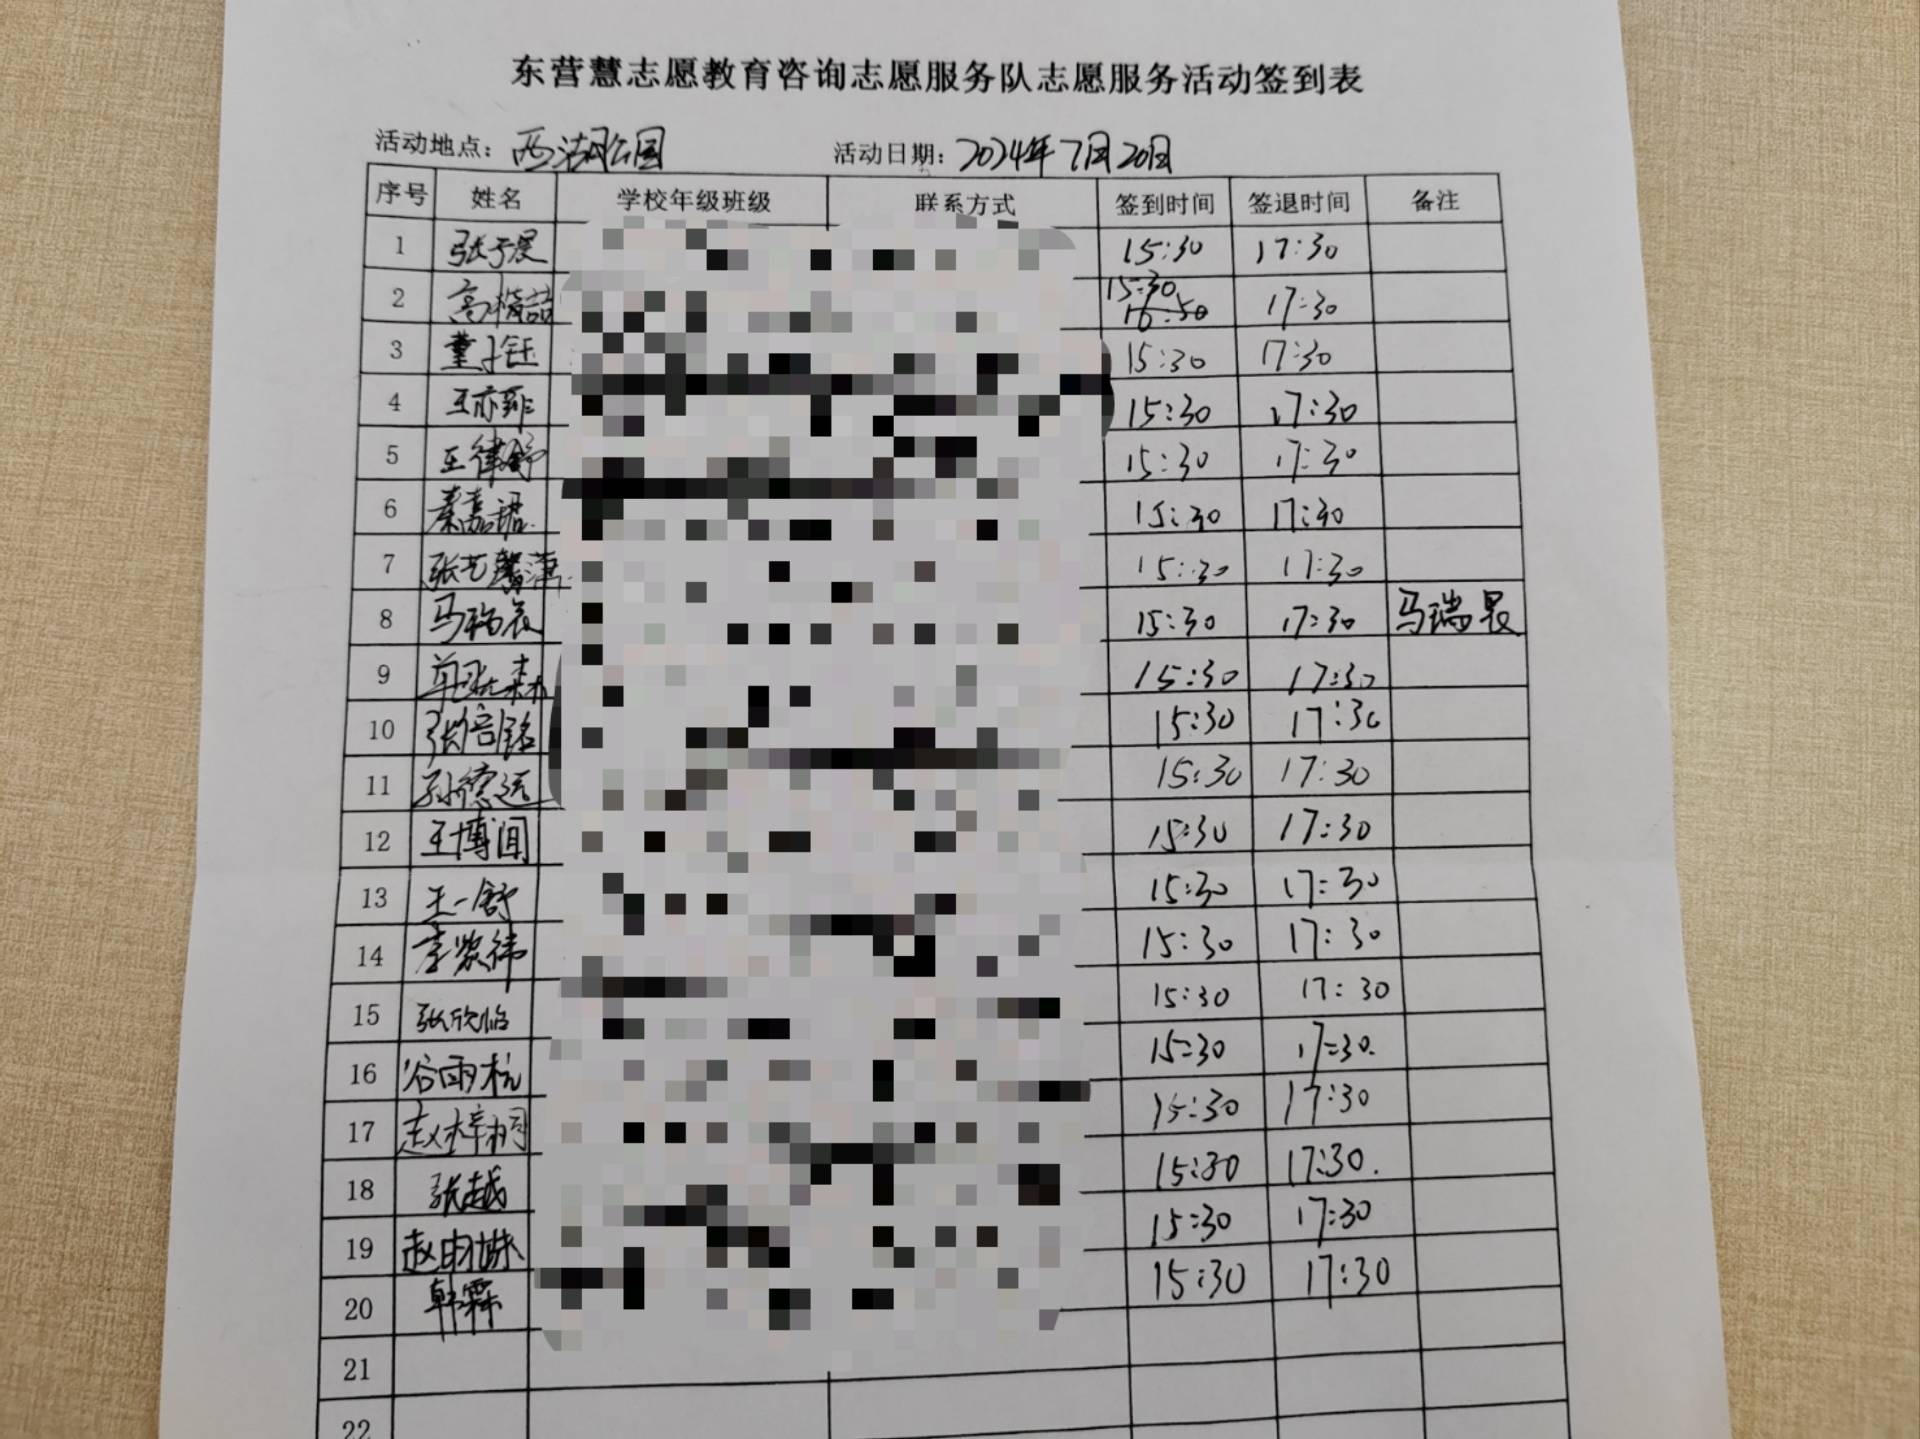 东营慧志愿教育咨询志愿服务队志愿服务活动签到表
活动地点：西湖公园 活动日期：2024年7月20日
序号 姓名 学校年级班级 联系方式 签到时间 签退时间 备注
1 张于晨 15:30 17:30
2 高楷喆 15:30 16:50 17:30
3 董子钰 15:30 17:30
4 王亦菲 15:30 17:30
5 王律舒 15:30 17:30
6 秦嘉珺 15:30 17:30
7 张艺馨 15:30 17:30
8 马瑞辰 15:30 17:30 马瑞晨
9 森 15:30 17:30
10 张倍铭 15:30 17:30
11 孙德远 15:30 17:30
12 王博闻 15:30 17:30
13 王一舒 15:30 17:30
14 李 15:30 17:30
15 张欣怡 15:30 17:30
16 谷雨杭 15:30 17:30
17 赵梓桐 15:30 17:30
18 张越 15:30 17:30
19 赵 15:30 17:30
20 韩霖 15:30 17:30
21
22